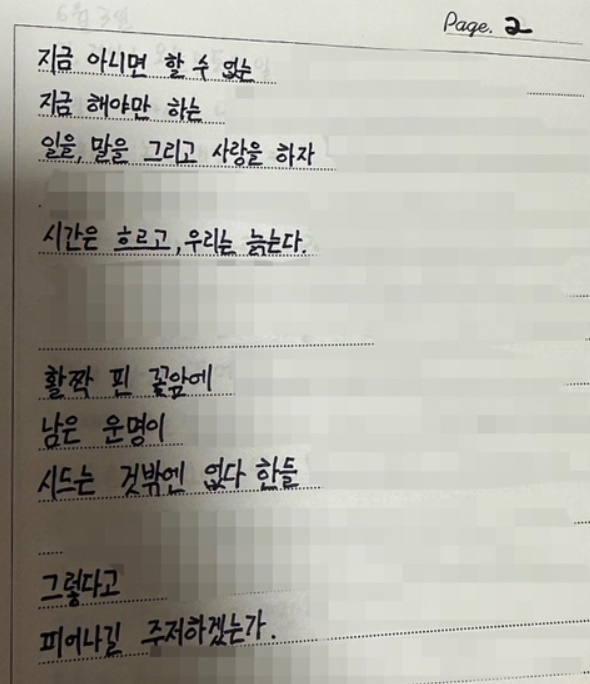 Page. 2
지금 아니면 할 수 없는
지금 해야만 하는
일을, 말을 그리고 사랑을 하자
시간은 흐르고, 우리는 늙는다.
활짝 핀 꽃앞에
남은 운명이
시드는 것밖엔 없다 한들
그렇다고
피어나길 주저하겠는가.